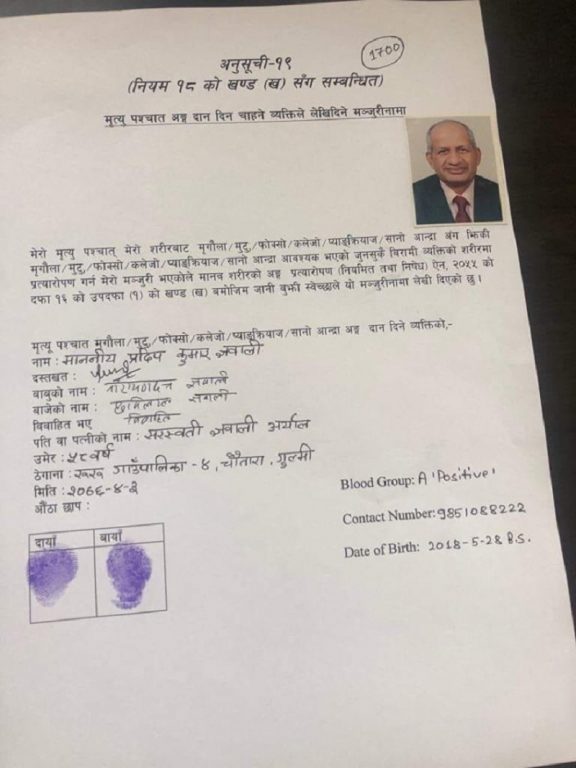 अनुसूची-१९
1700
(नियम १८ को खण्ड (ख) सँग सम्बन्धित)
मृत्यु पश्चात अङ्ग दान दिन चाहने व्यक्तिले लेखिदिने मञ्जुरीनामा
मेरो मृत्यु पश्चात् मेरो शरीरबाट मृगौला/मुटु/फोक्सो/कलेजो/प्याङ्क्रियाज/सानो आन्द्रा अंग झिकी
मृगौला/मुटु/फोक्सो/कलेजो/प्याङ्क्रियाज/सानो आन्द्रा आवश्यक भएको जुनसुकै बिरामी व्यक्तिको शरीरमा
प्रत्यारोपण गर्न मेरो मञ्जुरी भएकोले मानव शरीरको अङ्ग प्रत्यारोपण (नियमित तथा निषेध) ऐन, २०५५ को
दफा १६ को उपदफा (१) को खण्ड (ख) बमोजिम जानी बुझी स्वेच्छाले यो मञ्जुरीनामा लेखी दिएको छु ।
मृत्यू पश्चात मृगौला/मुटु/फोक्सो/कलेजो/प्याङ्क्रियाज/सानो आन्द्रा अङ्ग दान दिने व्यक्तिको,-
नाम : माननीय प्रदिप कुमार ज्ञवाली
दस्तखत :
बाबुको नाम : ज्ञवाली
बाजेको नाम : ज्ञवाली
विवाहित भए विवाहित
पति वा पत्नीको नाम : सरस्वती ज्ञवाली अर्याल
उमेर : ५८ वर्ष
ठेगाना : रूरू गाउँपालिका - ४, चौतारा, गुल्मी
मिति : २०७६-४-३
औंठा छाप :
दायाँ बायाँ
Blood Group: A 'Positive'
Contact Number: 9851088222
Date of Birth: 2018-5-28 B.S.